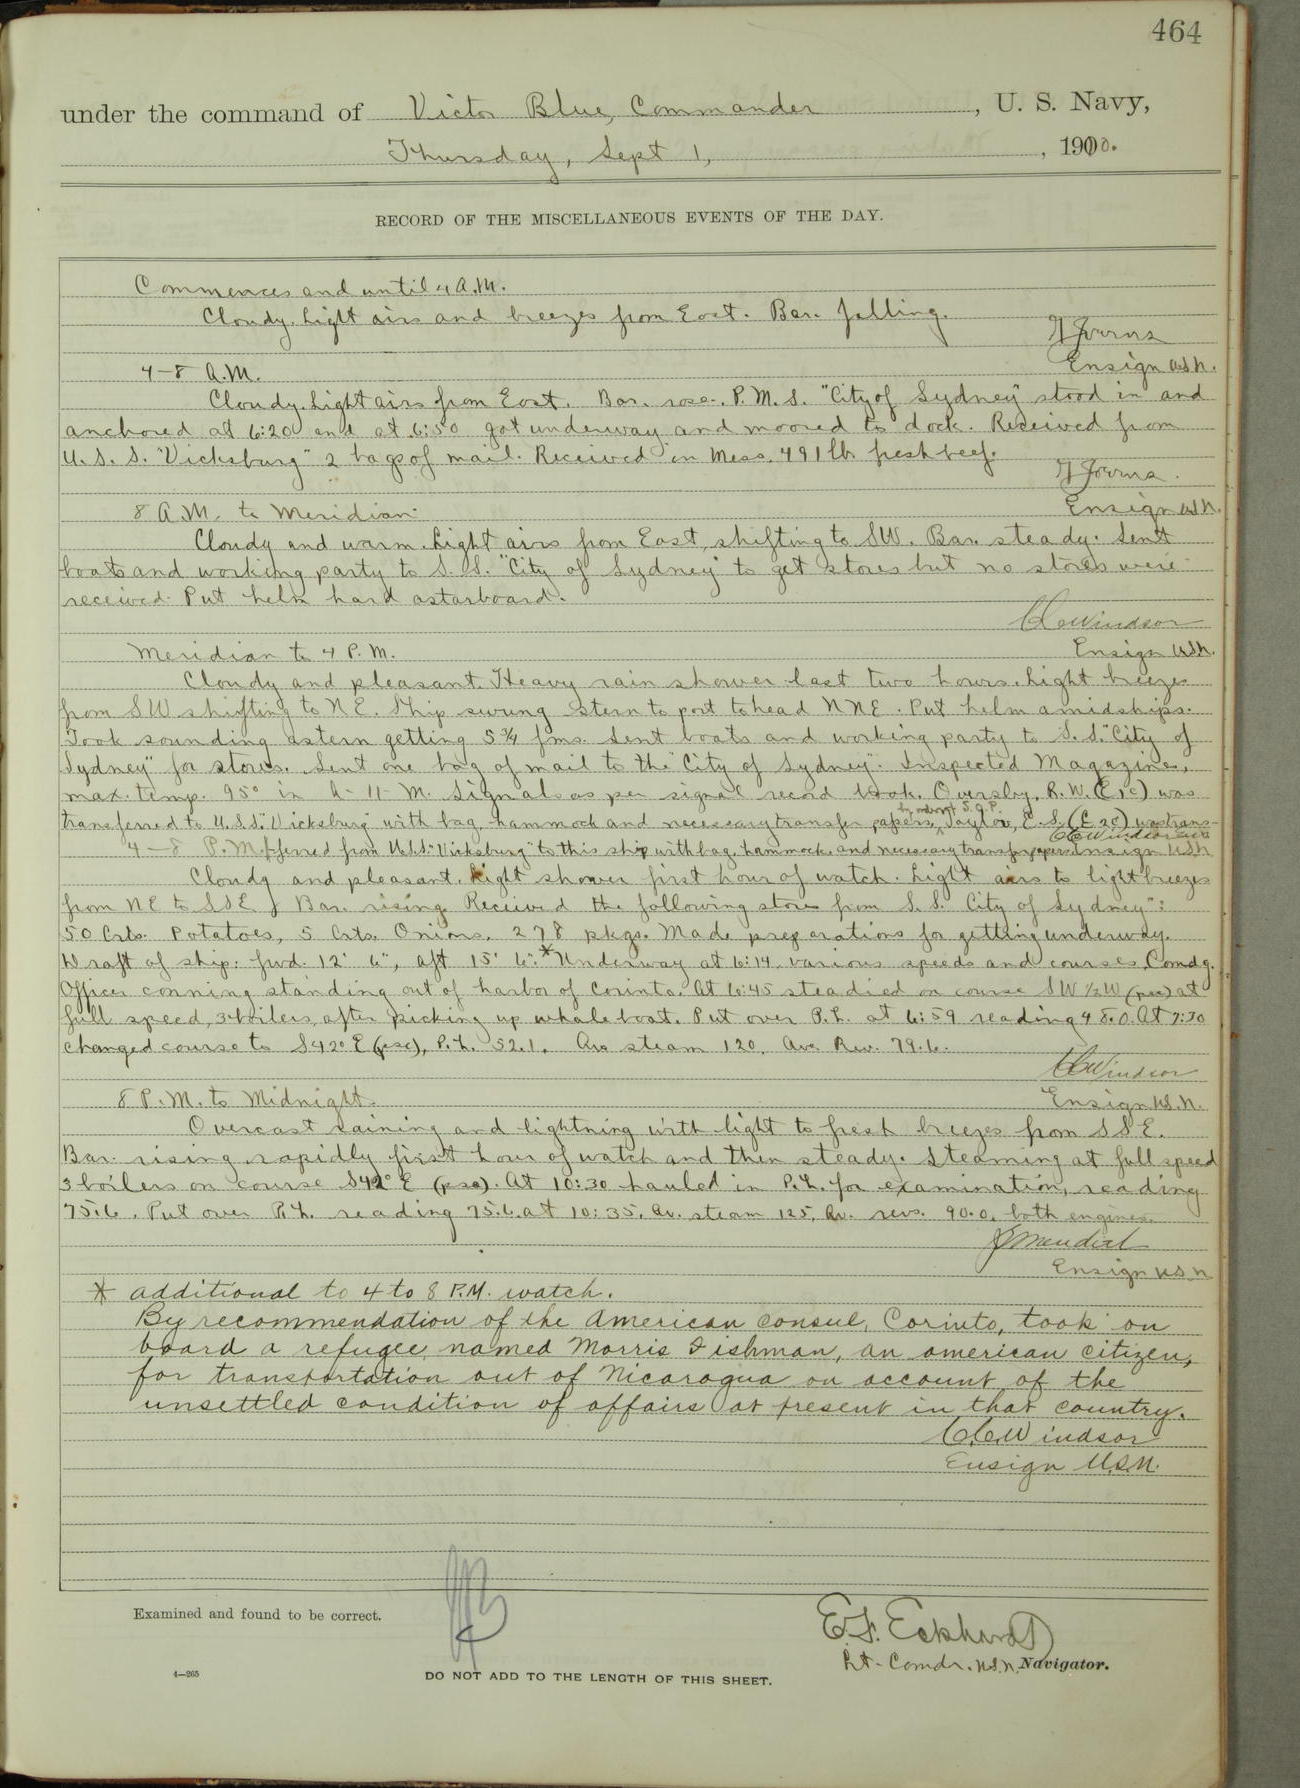 464
under the command of Victor Blue, Commander, U. S. Navy,
Thursday, Sept 1, , 1910.
RECORD OF THE MISCELLANEOUS EVENTS OF THE DAY.
Commences and until 4 A.M.
Cloudy. Light airs and breezes from East. Bar. falling.
Ensign U.S.N.
4-8 A.M.
Cloudy. Light airs from East. Bar. rose. P.M.S. "City of Sydney" stood in and
anchored at 6:20 and at 6:50 got underway and moored to dock. Received from
U.S.S. "Vicksburg" 2 bags of mail. Received in Mess. 491 lb. fresh beef.
Ensign U.S.N.
8 A.M. to Meridian.
Cloudy and warm. Light airs from East, shifting to SW. Bar. steady. Sent
boats and working party to S.S. "City of Sydney" to get stores but no stores were
received. Put helm hard astarboard.
C.C. Windsor
Ensign U.S.N.
Meridian to 4 P.M.
Cloudy and pleasant. Heavy rain shower last two hours. Light breezes
from SW shifting to NE. Ship swung stern to port to head NNE. Put helm amidships.
Took sounding astern getting 5 3/4 fms. Sent boats and working party to S.S. "City of
Sydney" for stores. Sent one bag of mail to the "City of Sydney". Inspected Magazines,
max. temp. 95° in A-11-M. Signals as per signal record book. Oversby, R.W. (E 1c) was
transferred to U.S.S. "Vicksburg" with bag, hammock and necessary transfer papers, by order of S.O.P. Taylor, E.S. (E 2c) was trans-
C.C. Windsor
4-8 P.M. ferred from U.S.S. "Vicksburg" to this ship with bag, hammock, and necessary transfer papers. Ensign USN
Cloudy and pleasant. Light shower first hour of watch. Light airs to light breezes
from NE to SSE. Bar. rising. Received the following stores from S.S. "City of Sydney":
50 Crts. Potatoes, 5 Crts. Onions, 278 pkgs. Made preparations for getting underway.
Draft of ship: fwd. 12' 6", aft 15' 6". * Underway at 6:14, various speeds and courses, Comdg.
Officer conning standing out of harbor of Corinto. At 6:45 steadied on course SW 1/2 W (psc) at
full speed, 3 boilers, after picking up whaleboat. Put over P.L. at 6:59 reading 48.0. At 7:30
changed course to S42°E (psc), P.L. 52.1. Av. steam 120, Ave. Rev. 79.6.
C.C. Windsor
Ensign U.S.N.
8 P.M. to Midnight.
Overcast raining and lightning with light to fresh breezes from SSE.
Bar. rising rapidly first hour of watch and then steady. Steaming at full speed
3 boilers on course S42°E (psc). At 10:30 hauled in P.L. for examination, reading
75.6. Put over P.L. reading 75.6 at 10:35. Av. steam 125, Av. revs. 90.0, both engines.
Ensign U.S.N.
* additional to 4 to 8 P.M. watch.
By recommendation of the American Consul, Corinto, took on
board a refugee named Morris Fishman, an american citizen,
for transportation out of Nicaragua on account of the
unsettled condition of affairs at present in that country.
C.C. Windsor
Ensign U.S.N.
Examined and found to be correct.
E.F. Eckhardt
Lt-Comdr. U.S.N. Navigator.
4—265
DO NOT ADD TO THE LENGTH OF THIS SHEET.